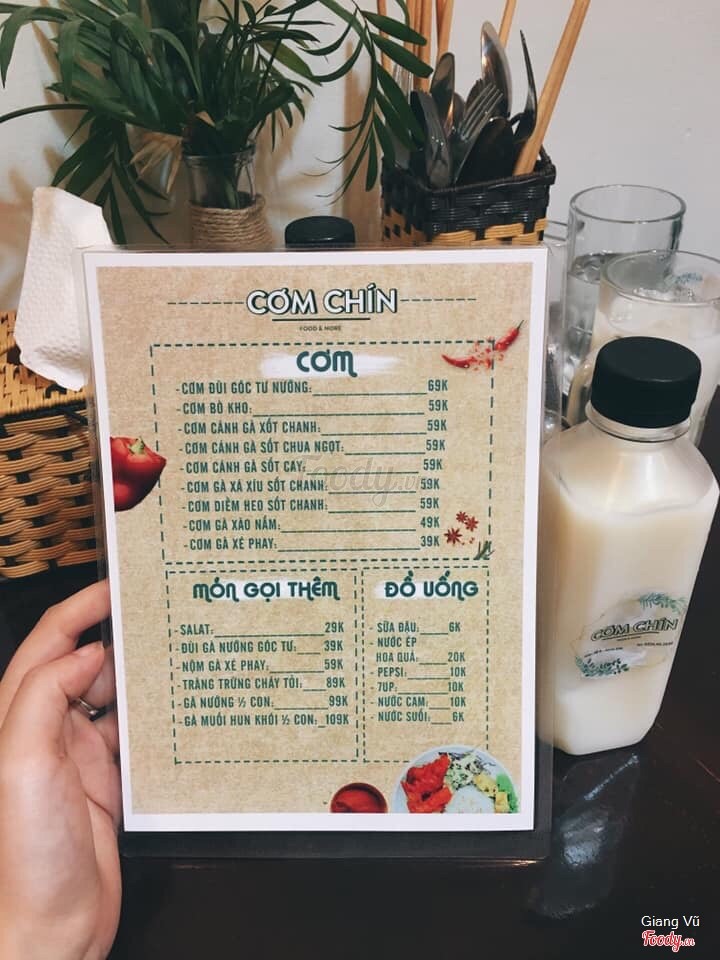 CƠM CHÍN
FOOD & MORE
CƠM
- CƠM ĐÙI GÓC TƯ NƯỚNG: 69K
- CƠM BÒ KHO: 59K
- CƠM CÁNH GÀ XỐT CHANH: 59K
- CƠM CÁNH GÀ SỐT CHUA NGỌT: 59K
- CƠM CÁNH GÀ SỐT CAY: 59K
- CƠM GÀ XÁ XÍU SỐT CHANH: 59K
- CƠM DIỀM HEO SỐT CHANH: 59K
- CƠM GÀ XÀO NẤM: 49K
- CƠM GÀ XÉ PHAY: 39K
MÓN GỌI THÊM
- SALAT: 29K
- ĐÙI GÀ NƯỚNG GÓC TƯ: 39K
- NỘM GÀ XÉ PHAY: 59K
- TRÀNG TRỨNG CHÁY TỎI: 89K
- GÀ NƯỚNG ½ CON: 99K
- GÀ MUỐI HUN KHÓI ½ CON: 109K
ĐỒ UỐNG
- SỮA ĐẬU: 6K
- NƯỚC ÉP
HOA QUẢ: 20K
- PEPSI: 10K
- 7UP: 10K
- NƯỚC CAM: 10K
- NƯỚC SUỐI: 6K
CƠM CHÍN
Foody.vn
Giang Vũ
Foody.vn